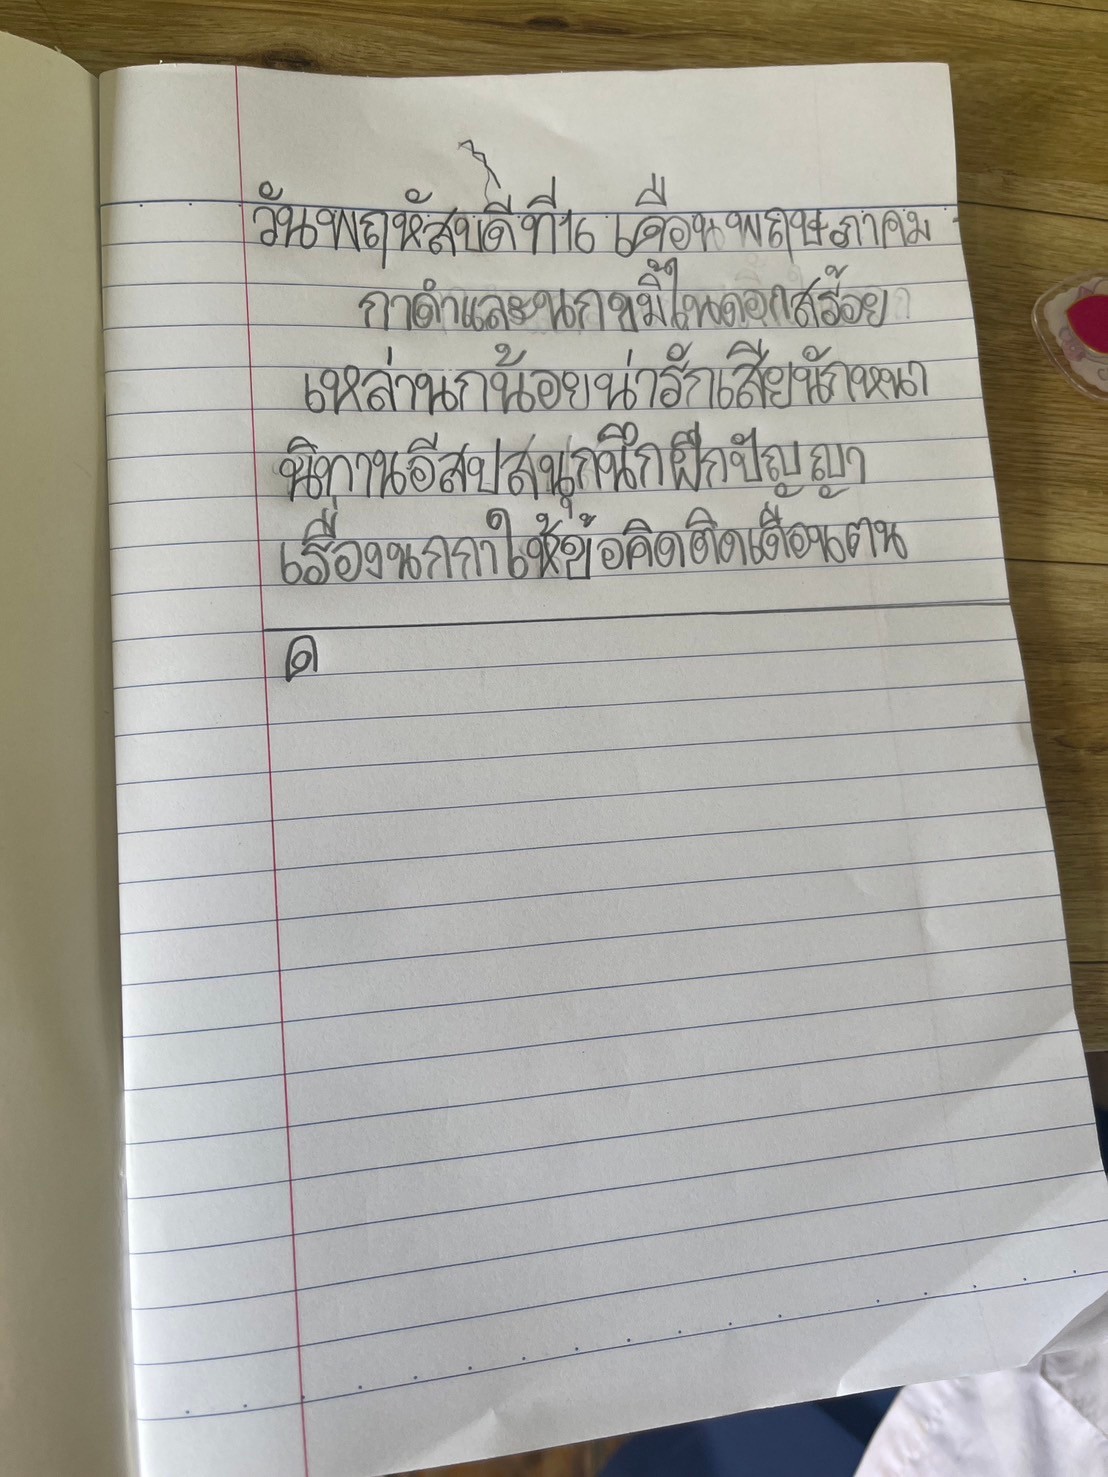 วันพฤหัสบดีที่16 เดือนพฤษภาคม
กาดำและนกขมิ้นในดอกสร้อย
เหล่านกน้อยน่ารักเสียนักหนา
นิทานอีสปสนุกนึกฝึกปัญญา
เรื่องนกกาให้ข้อคิดติดเตือนตน
ด